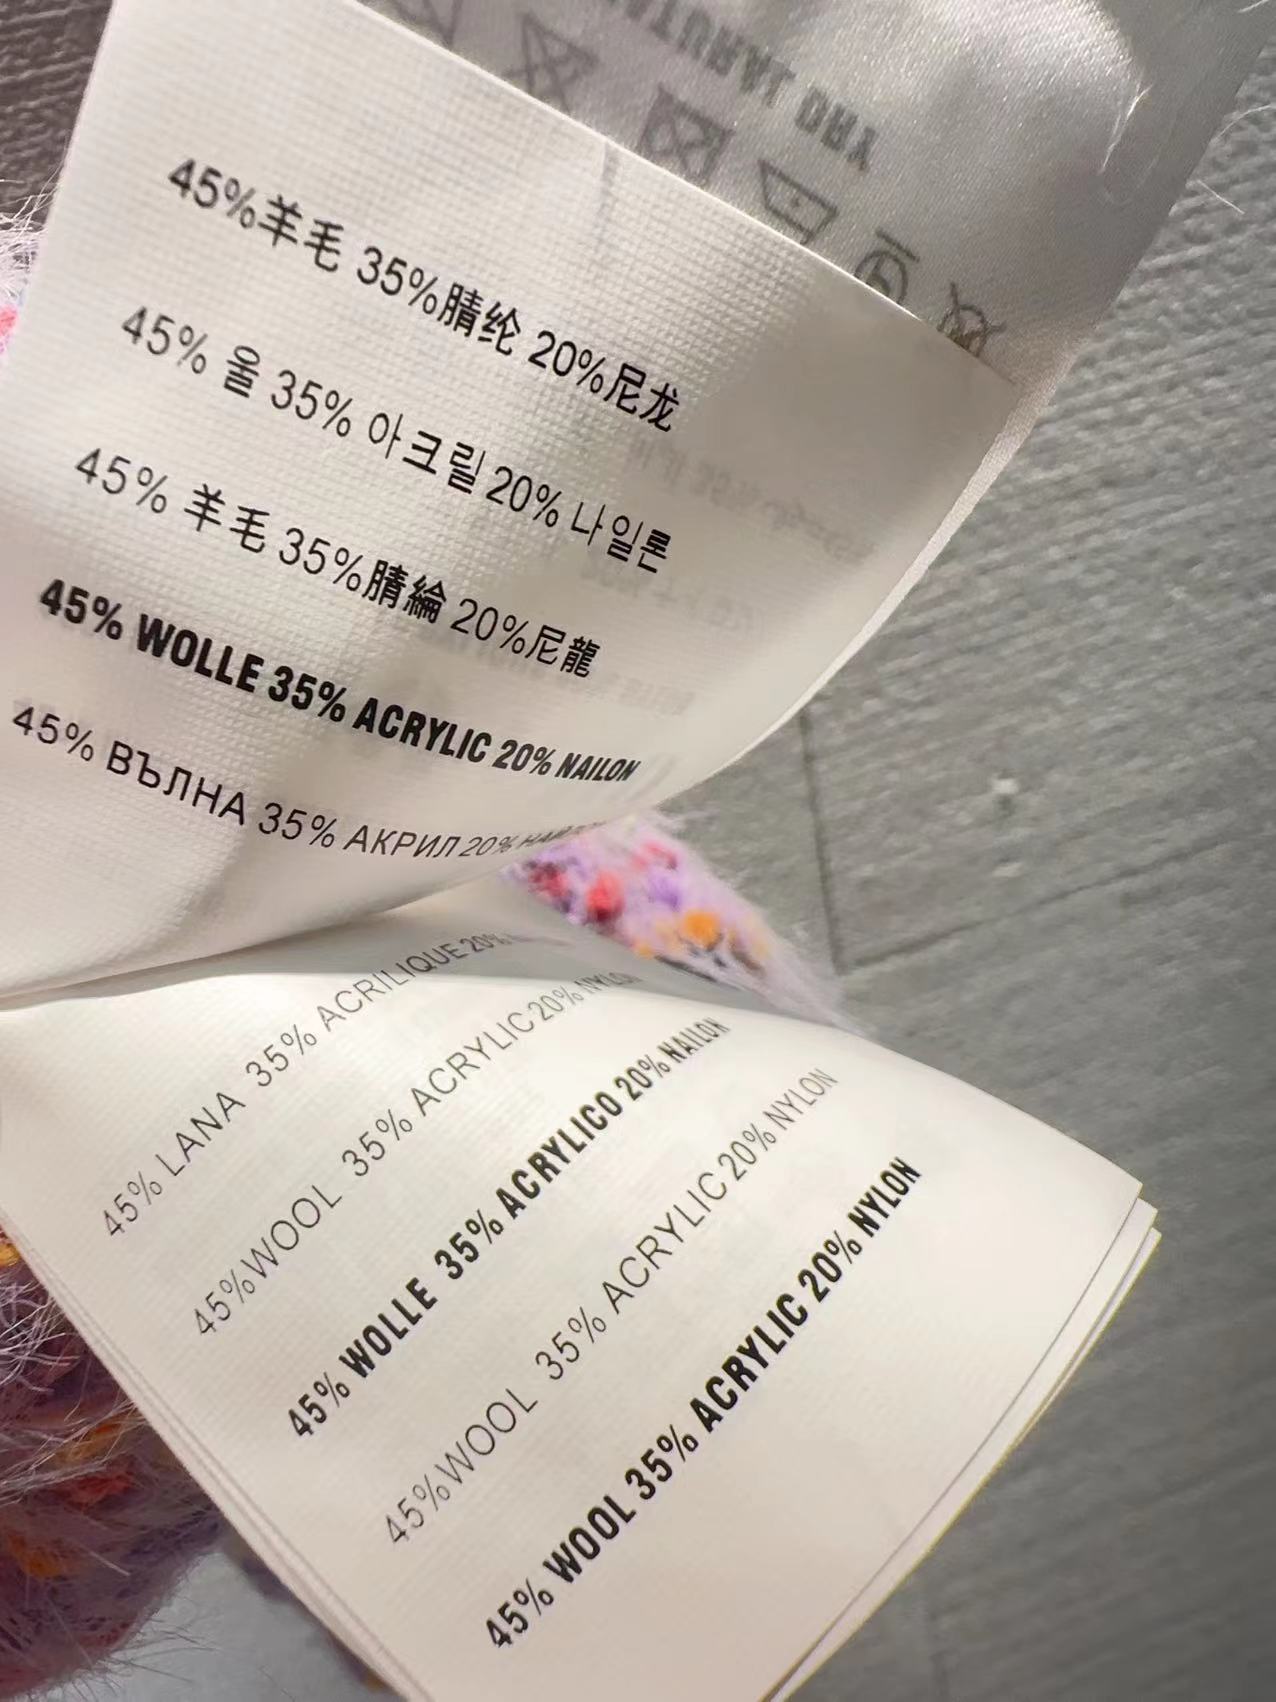 NATURAL DRY
45%羊毛 35%腈纶 20%尼龙
45% 울 35% 아크릴 20% 나일론
45% 羊毛 35%腈綸 20%尼龍
45% WOLLE 35% ACRYLIC 20% NAILON
45% ВЪЛНА 35% АКРИЛ 20%
45% LANA 35% ACRILIQUE 20%
45%WOOL 35% ACRYLIC 20% NYLON
45% WOLLE 35% ACRYLICO 20% NAILON
45%WOOL 35% ACRYLIC 20% NYLON
45% WOOL 35% ACRYLIC 20% NYLON